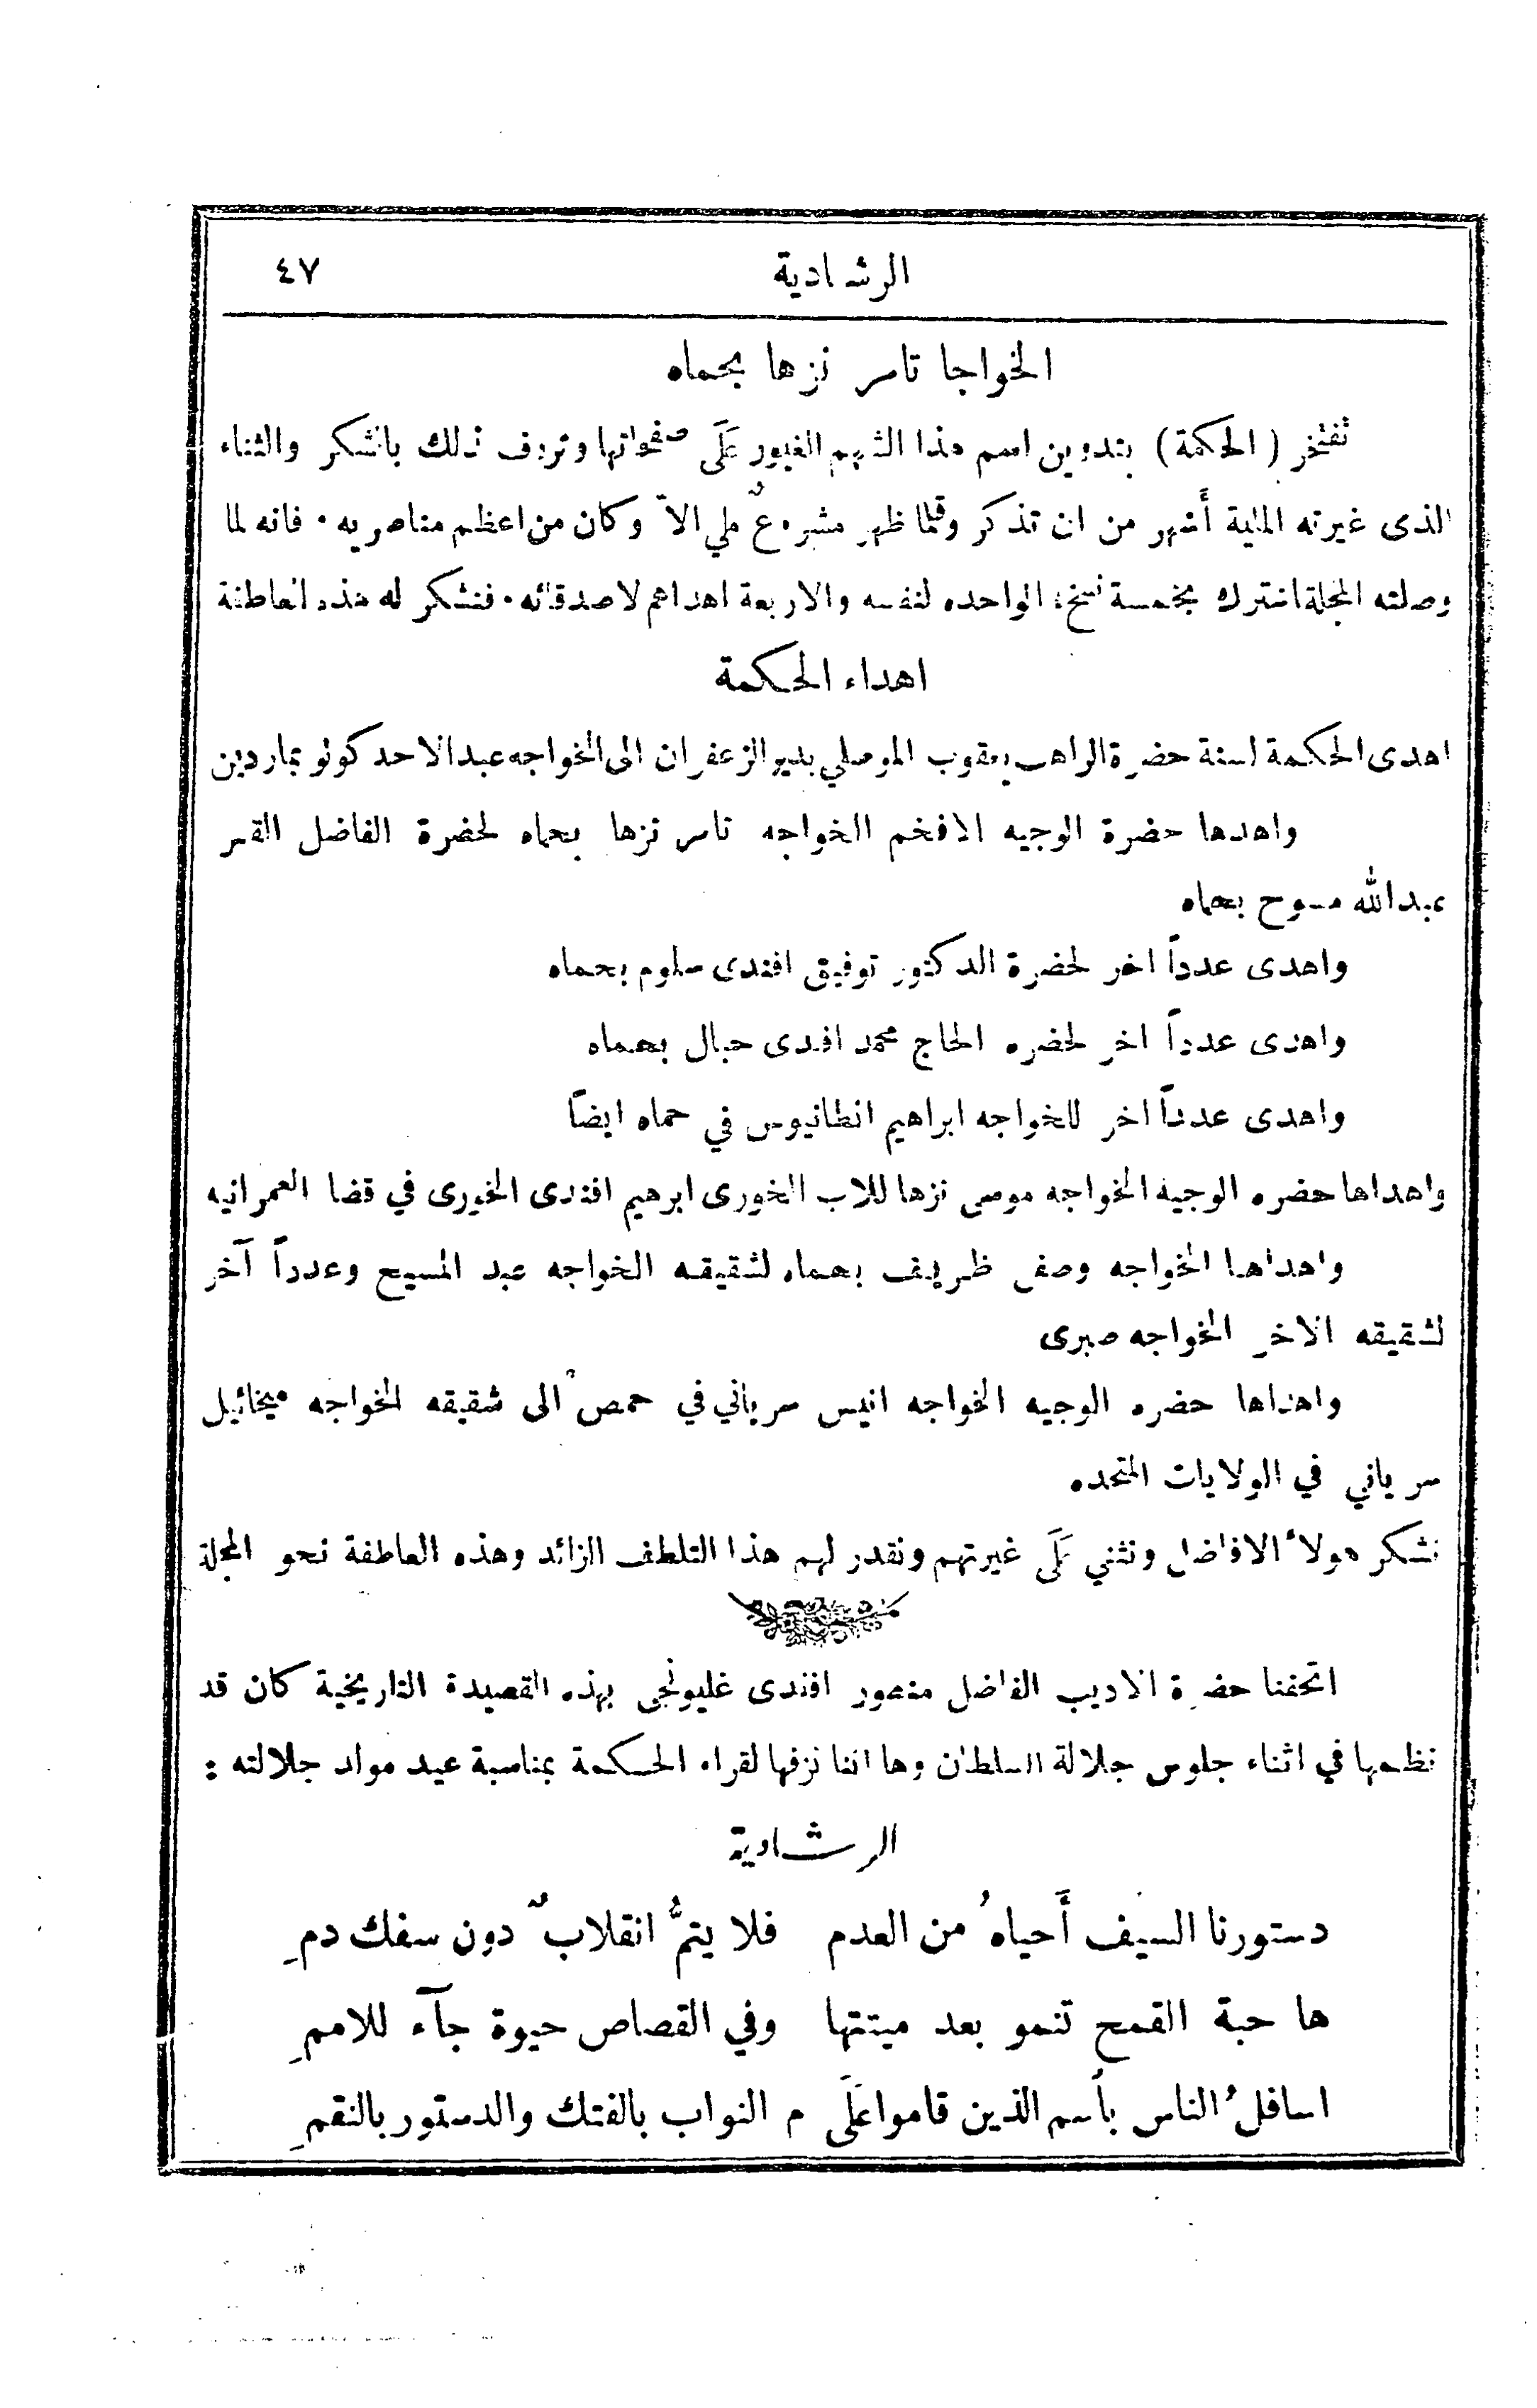 الرشادية ٤٧
الخواجا تامر نزها بحماه
تفتخر (الحكمة) بتدوين اسم هذا الشهم الغيور عَلَى صفحاتها وتردف ذلك بالشكر والثناء
الذى غيرته الملية أَشهر من ان تذكر وقلما ظهر مشروعٌ ملي الاّ وكان من اعظم مناصريه ٠ فانه لما
وصلته المجلة اشترك بخمسة نسخ: الواحده لنفسه والاربعة اهداهم لاصدقائه ٠ فنشكر له هذه العاطفة
اهداء الحكمة
اهدى الحكمة لسنة حضرة الراهب يعقوب الموصلي بدير الزعفران الى الخواجه عبدالاحد كولو بماردين
واهدها حضرة الوجيه الافخم الخواجه تامر نزها بحماه لحضرة الفاضل القس
عبدالله مسوح بحماه
واهدى عدداً اخر لحضرة الدكتور توفيق افندى سلوم بحماه
واهدى عدداً اخر لحضره الحاج محمد افندى حبال بحماه
واهدى عدداً اخر للخواجه ابراهيم انطانيوس في حماه ايضاً
واهداها حضره الوجيه الخواجه موسى نزها للاب الخورى ابرهيم افندى الخورى في قضا العمرانيه
واهداها الخواجه وصفى ظريف بحماه لشقيقه الخواجه عبد المسيح وعدداً آخر
لشقيقه الاخر الخواجه صبرى
واهداها حضره الوجيه الخواجه انيس سرياني في حمص الى شقيقه الخواجه ميخائيل
سرياني في الولايات المتحده
نشكر هولاء الافاضل ونثني عَلَى غيرتهم ونقدر لهم هذا التلطف الزائد وهذه العاطفة نحو المجلة
اتحفنا حضرة الاديب الفاضل منصور افندى غليونجى بهذه القصيدة التاريخية كان قد
نظمها في اثناء جلوس جلالة السلطان وها اننا نزفها لقراء الحكمة بمناسبة عيد مولد جلالته :
الرشادية
دستورنا السيف أَحياهُ من العدم فلا يتمُّ انقلابٌ دون سفك دمِ
ها حبة القمح تنمو بعد ميتتها وفي القصاص حيوة جآء للاممِ
اسافلُ الناس بأسم الذين قاموا عَلَى م النواب بالفتك والدستور بالنقمِ